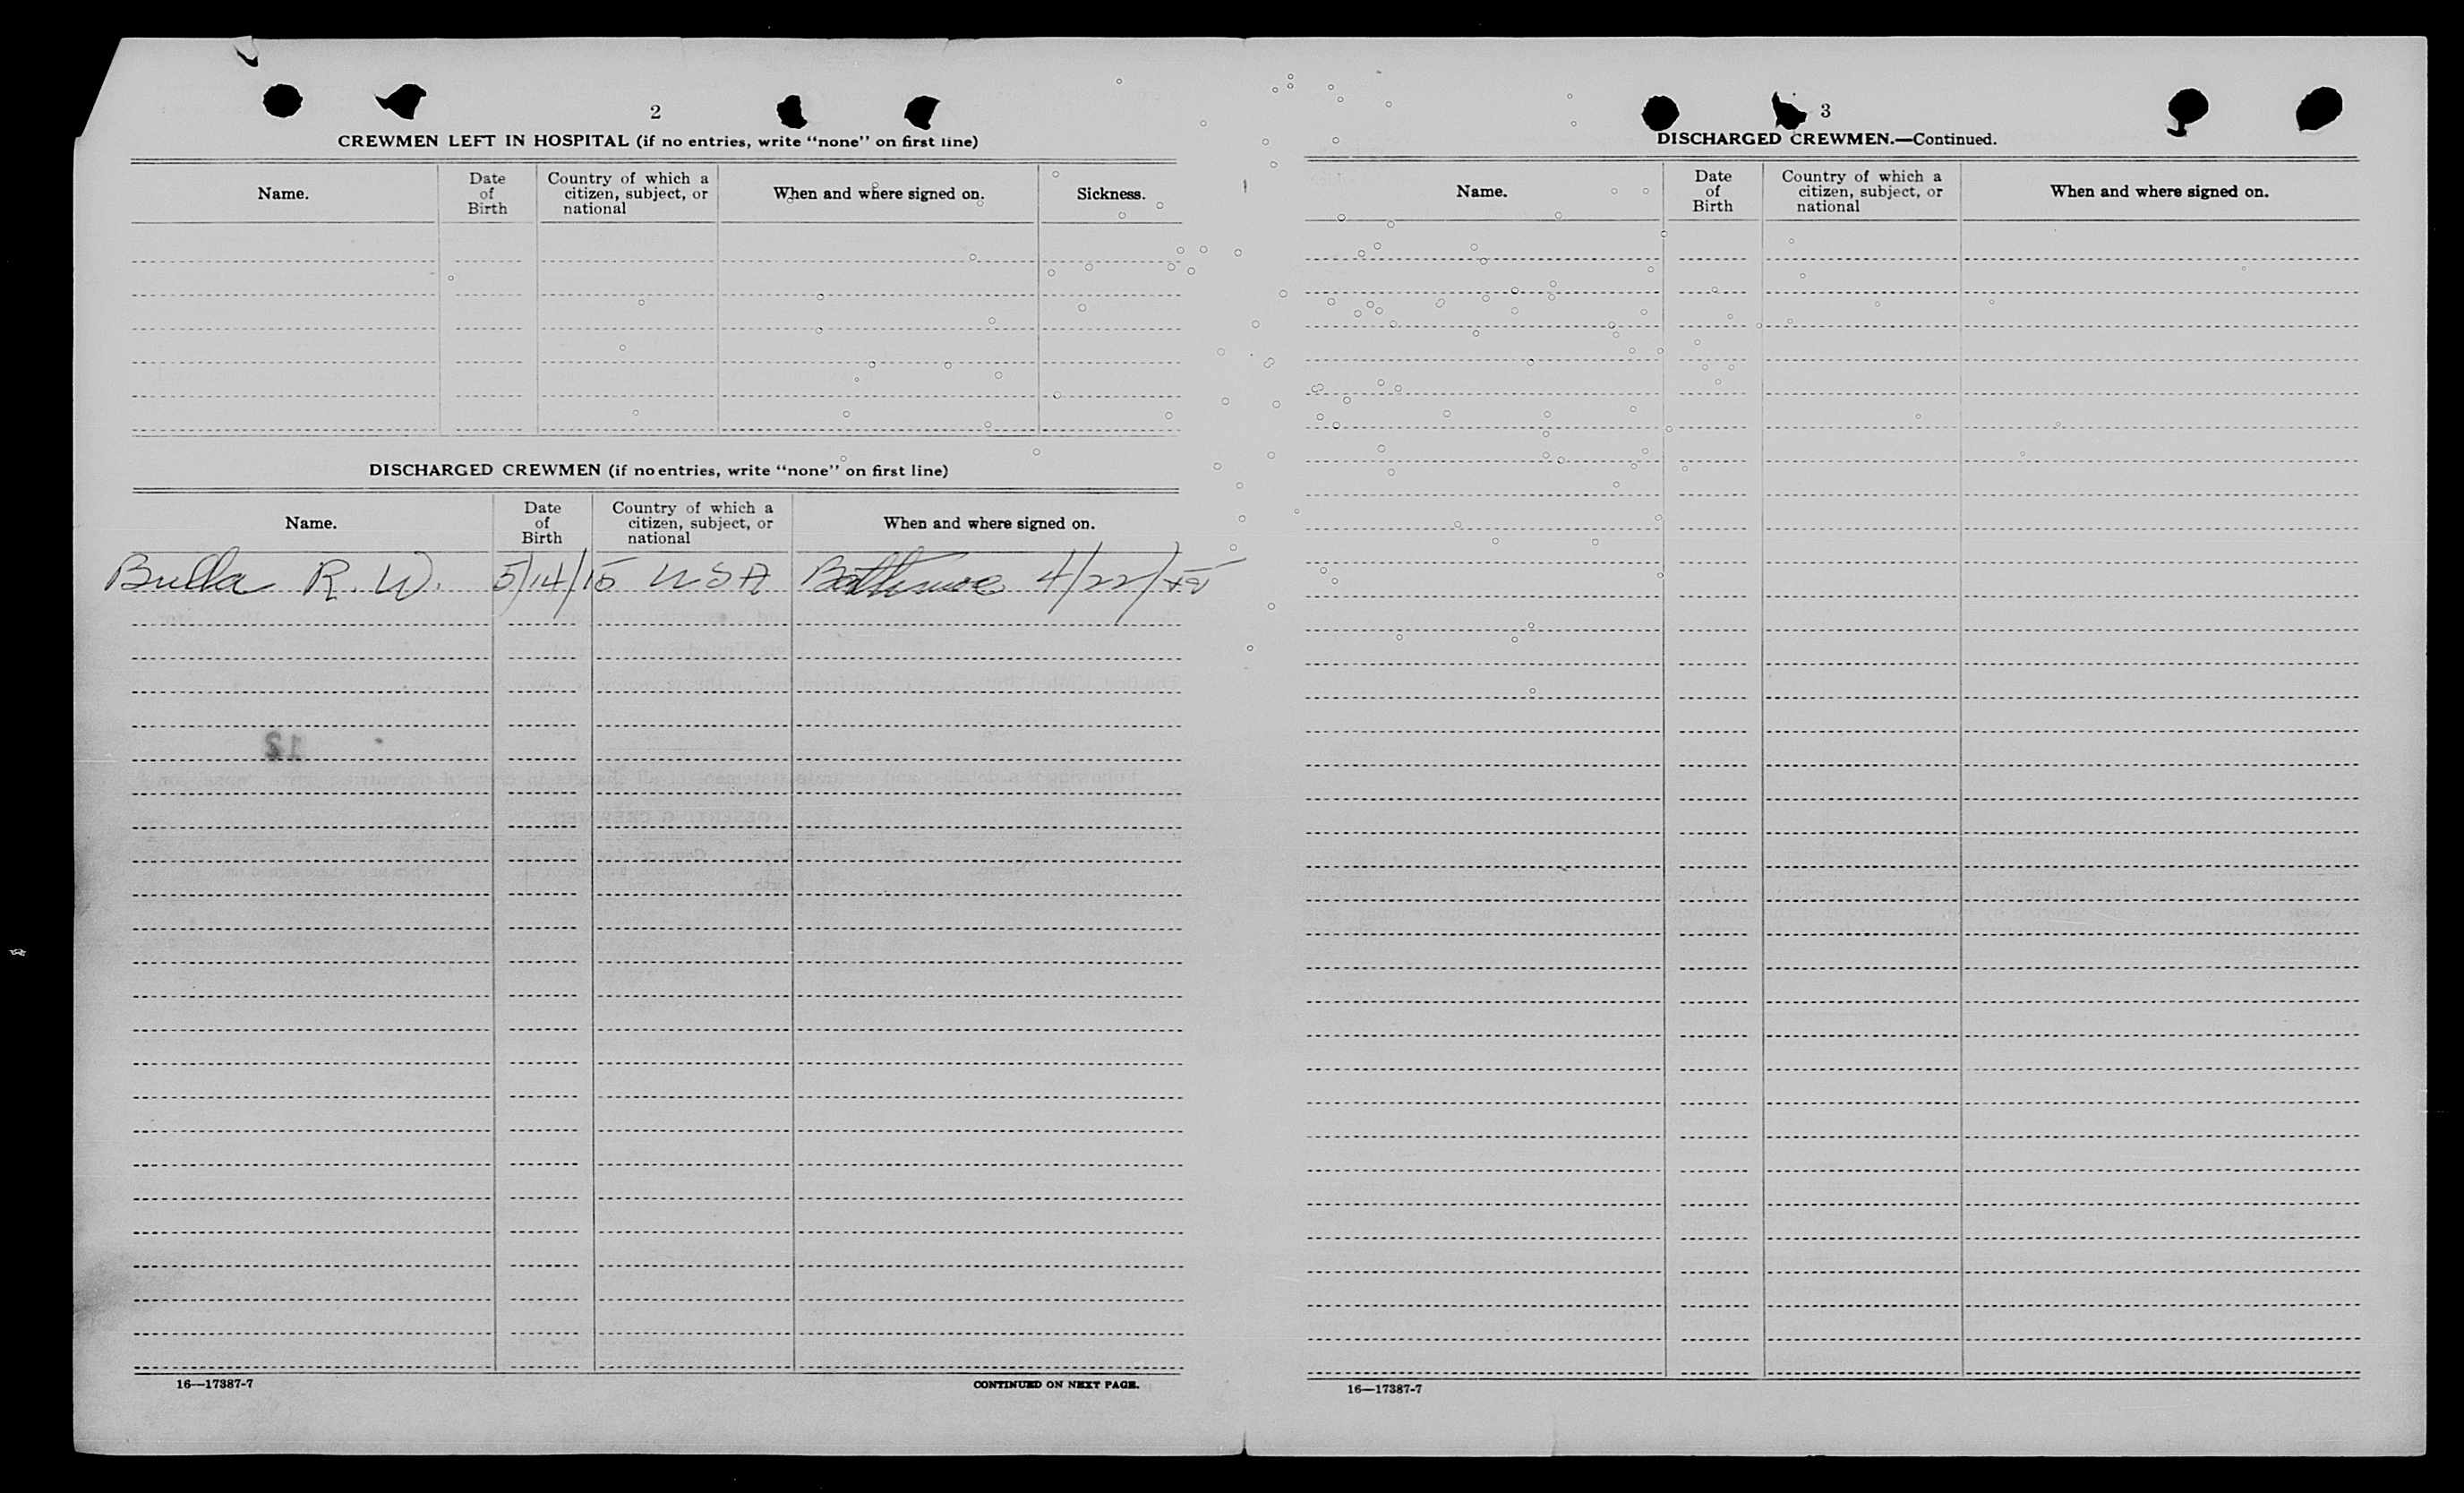 2
CREWMEN LEFT IN HOSPITAL (if no entries, write "none" on first line)
Name.
Date of Birth
Country of which a citizen, subject, or national
When and where signed on.
Sickness.
DISCHARGED CREWMEN (if no entries, write "none" on first line)
Name.
Date of Birth
Country of which a citizen, subject, or national
When and where signed on.
Bulla R. W. 5/14/15 USA Baltimore 4/22/
16—17387-7
CONTINUED ON NEXT PAGE.
3
DISCHARGED CREWMEN.—Continued.
Name.
Date of Birth
Country of which a citizen, subject, or national
When and where signed on.
16—17387-7